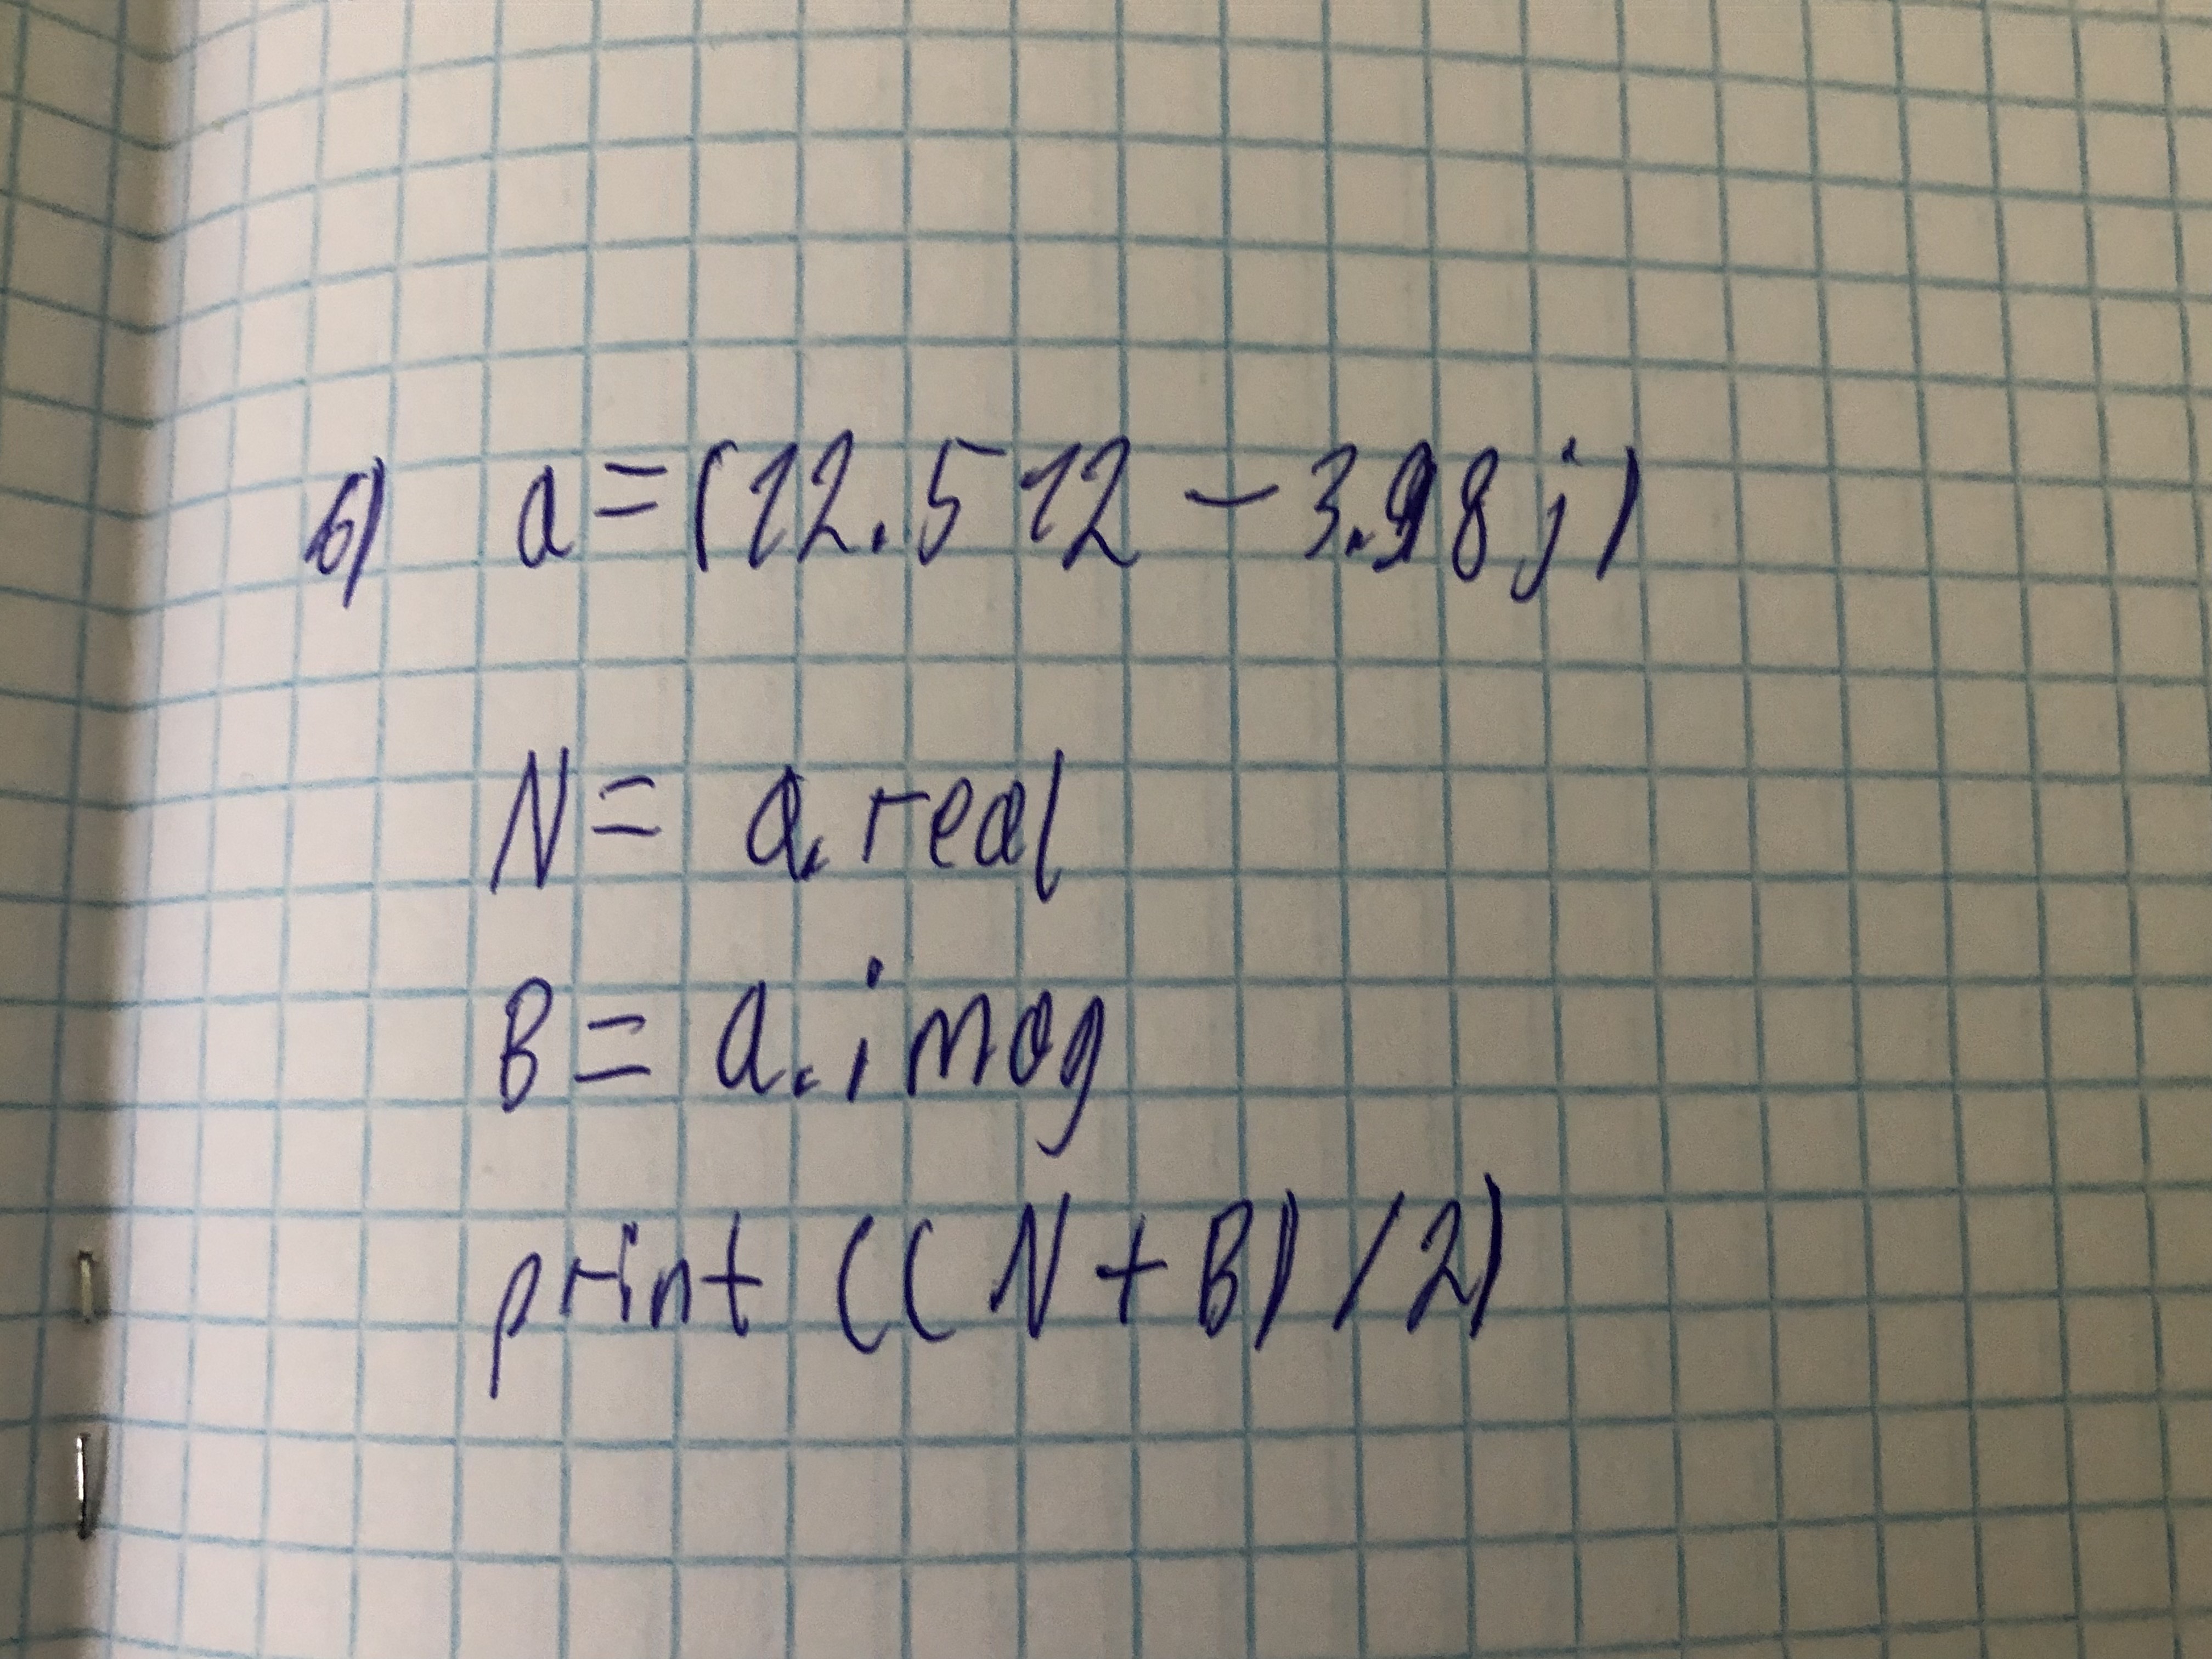 б) a=(12.512-3.98j)
N= a.real
B= a.imag
print((N+B)/2)